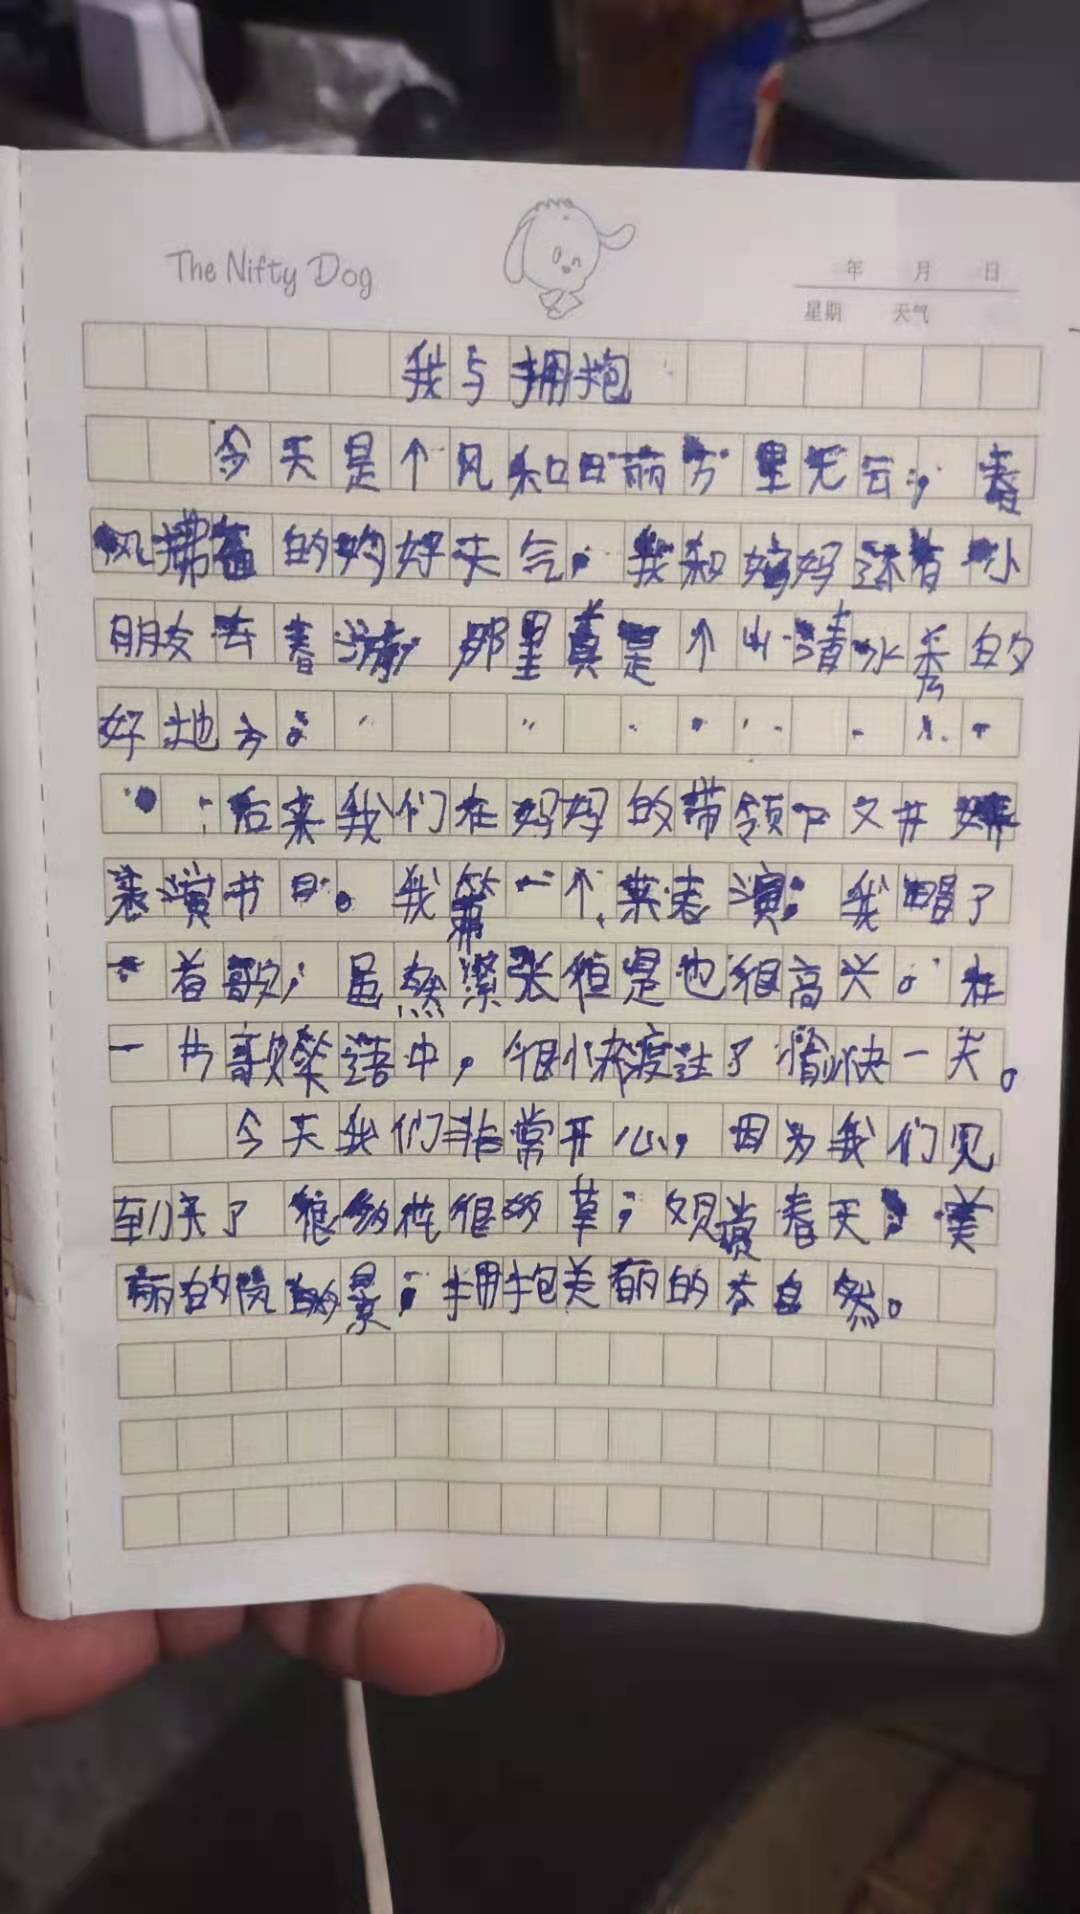 The Nifty Dog
年 月 日
星期 天气
我与拥抱
今天是个风和日丽万里无云，春
风拂着的好天气，我和妈妈还有小
朋友去春游，那里真是个山清水秀的
好地方。
后来我们在妈妈的带领下又开
表演节目。我第一个来表演，我唱了
一首歌，虽然紧张但是也很高兴。在
一片歌声语中，很快度过了愉快一天。
今天我们非常开心，因为我们见
到了很多花很多草，观赏春天美
丽的风景，拥抱美丽的大自然。